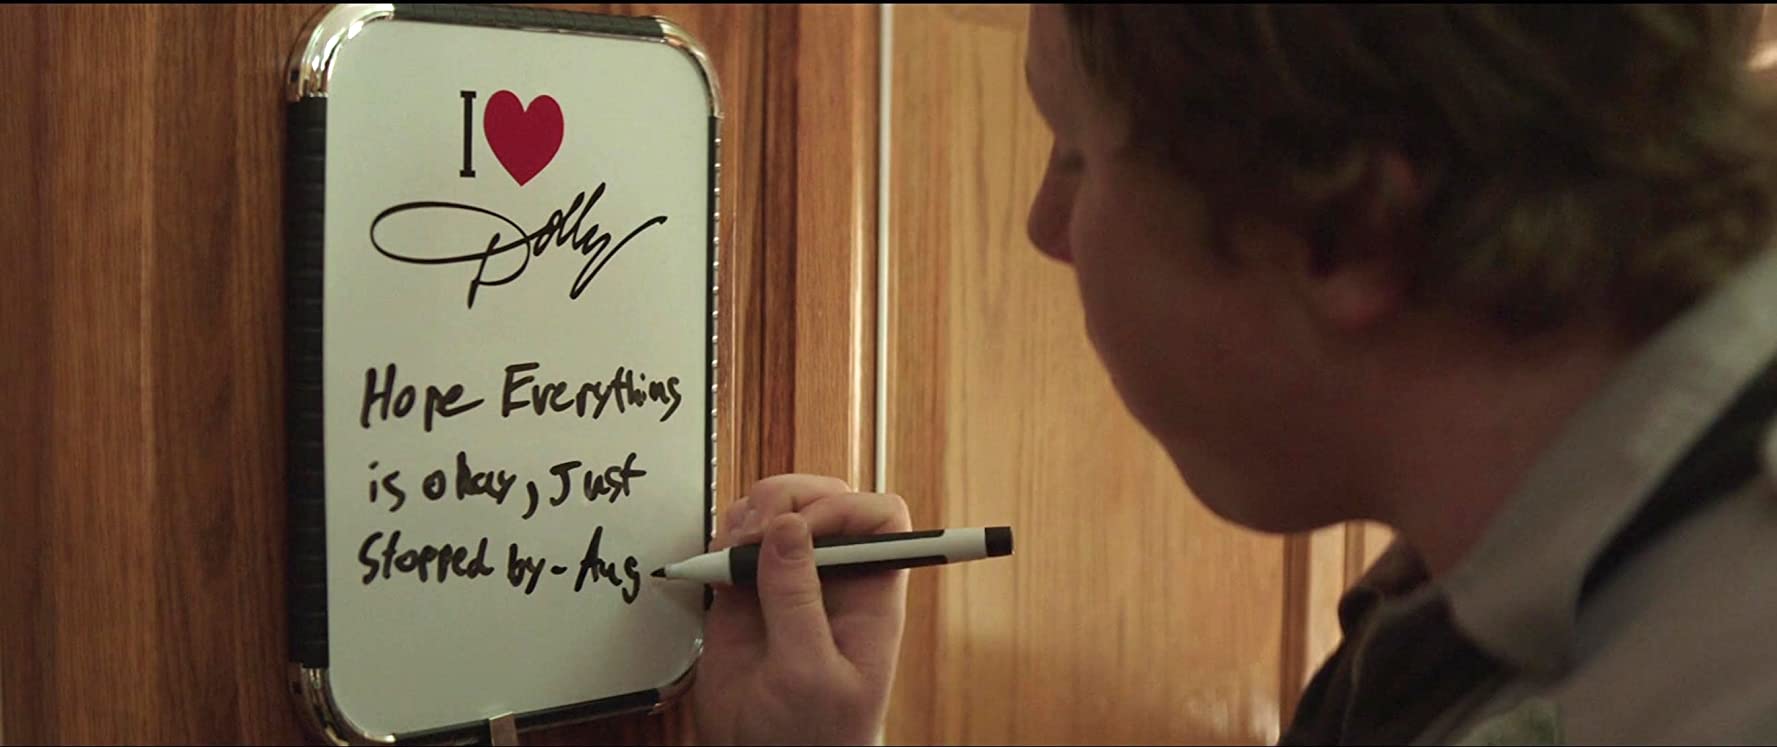 I
Dolly
Hope Everything
is okay, Just
Stopped by - Aug